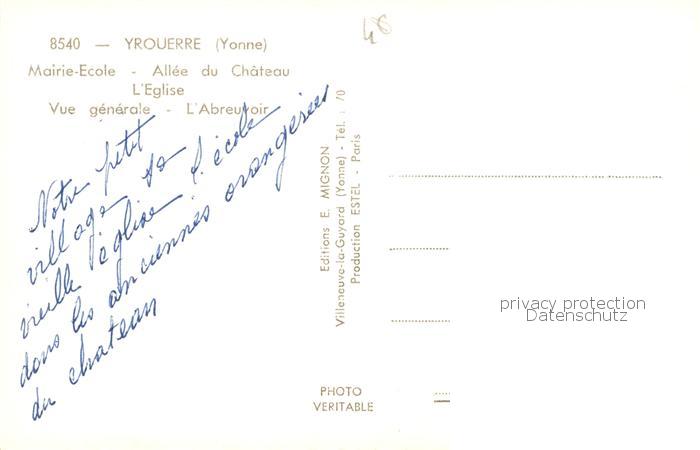 48
8540 — YROUERRE (Yonne)
Mairie-Ecole - Allée du Château
L'Eglise
Vue générale - L'Abreuvoir
Notre petit
village sa
vieille église l'école
dans les anciennes orangeries
du chateau
Editions E. MIGNON
Villeneuve-la-Guyard (Yonne) - Tél. : 70
Production ESTEL - Paris
privacy protection
Datenschutz
PHOTO
VERITABLE